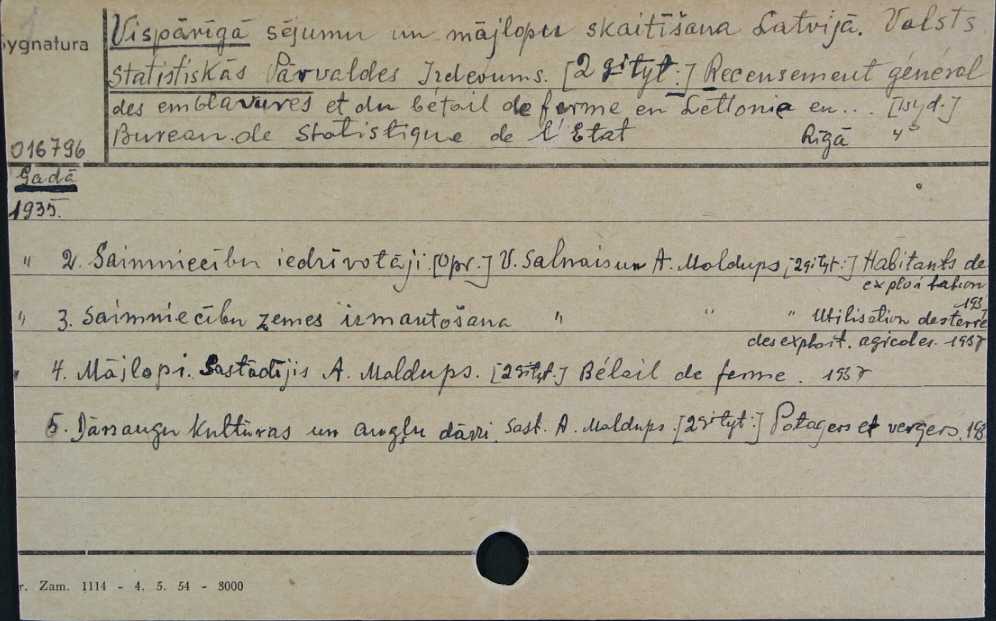 Sygnatura
016796
Vispārīgā sējumu un mājlopu skaitīšana Latvijā. Valsts
Statistiskās Pārvaldes Izdevums. [2gi tyt:] Recensement général
des emblavures et du bétail de ferme en Lettonie en... [Isyd.]
Bureau de Statistique de l'Etat Rīgā 4°
Gadā
1935.
" 2. Saimniecību iedzīvotāji. [Opr.] V. Salnais un A. Maldups [2gi tyt:] Habitants de
exploitation
193
" 3. Saimniecību zemes izmantošana " " " Utilisation des terre
des exploit. agicoles. 1937
" 4. Mājlopi. Sastādījis A. Maldups. [2gi tyt.] Bétail de ferme. 1937
5. Dārzaugu kultūras un augļu dārzi. Sast. A. Maldups. [2gi tyt:] Potagers et vergers. 193
r. Zam. 1114 - 4. 5. 54 - 3000